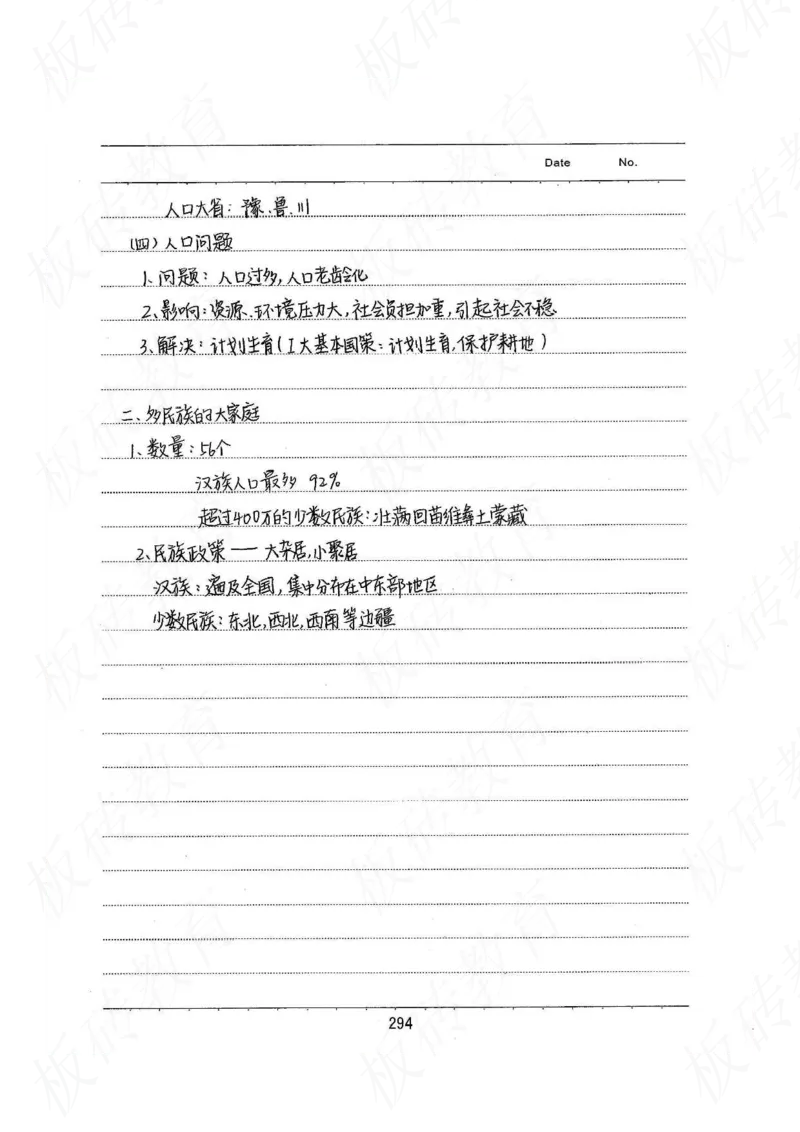 Date No.
人口大省：豫、鲁、川
(四)人口问题
1、问题：人口过多，人口老龄化
2、影响：资源、环境压力大，社会负担加重，引起社会不稳
3、解决：计划生育(I大基本国策：计划生育、保护耕地)
二、多民族的大家庭
1、数量：56个
汉族人口最多 92%
超过400万的少数民族：壮满回苗维彝土蒙藏
2、民族政策——大杂居，小聚居
汉族：遍及全国，集中分布在中东部地区
少数民族：东北，西北，西南等边疆
294
板砖教育